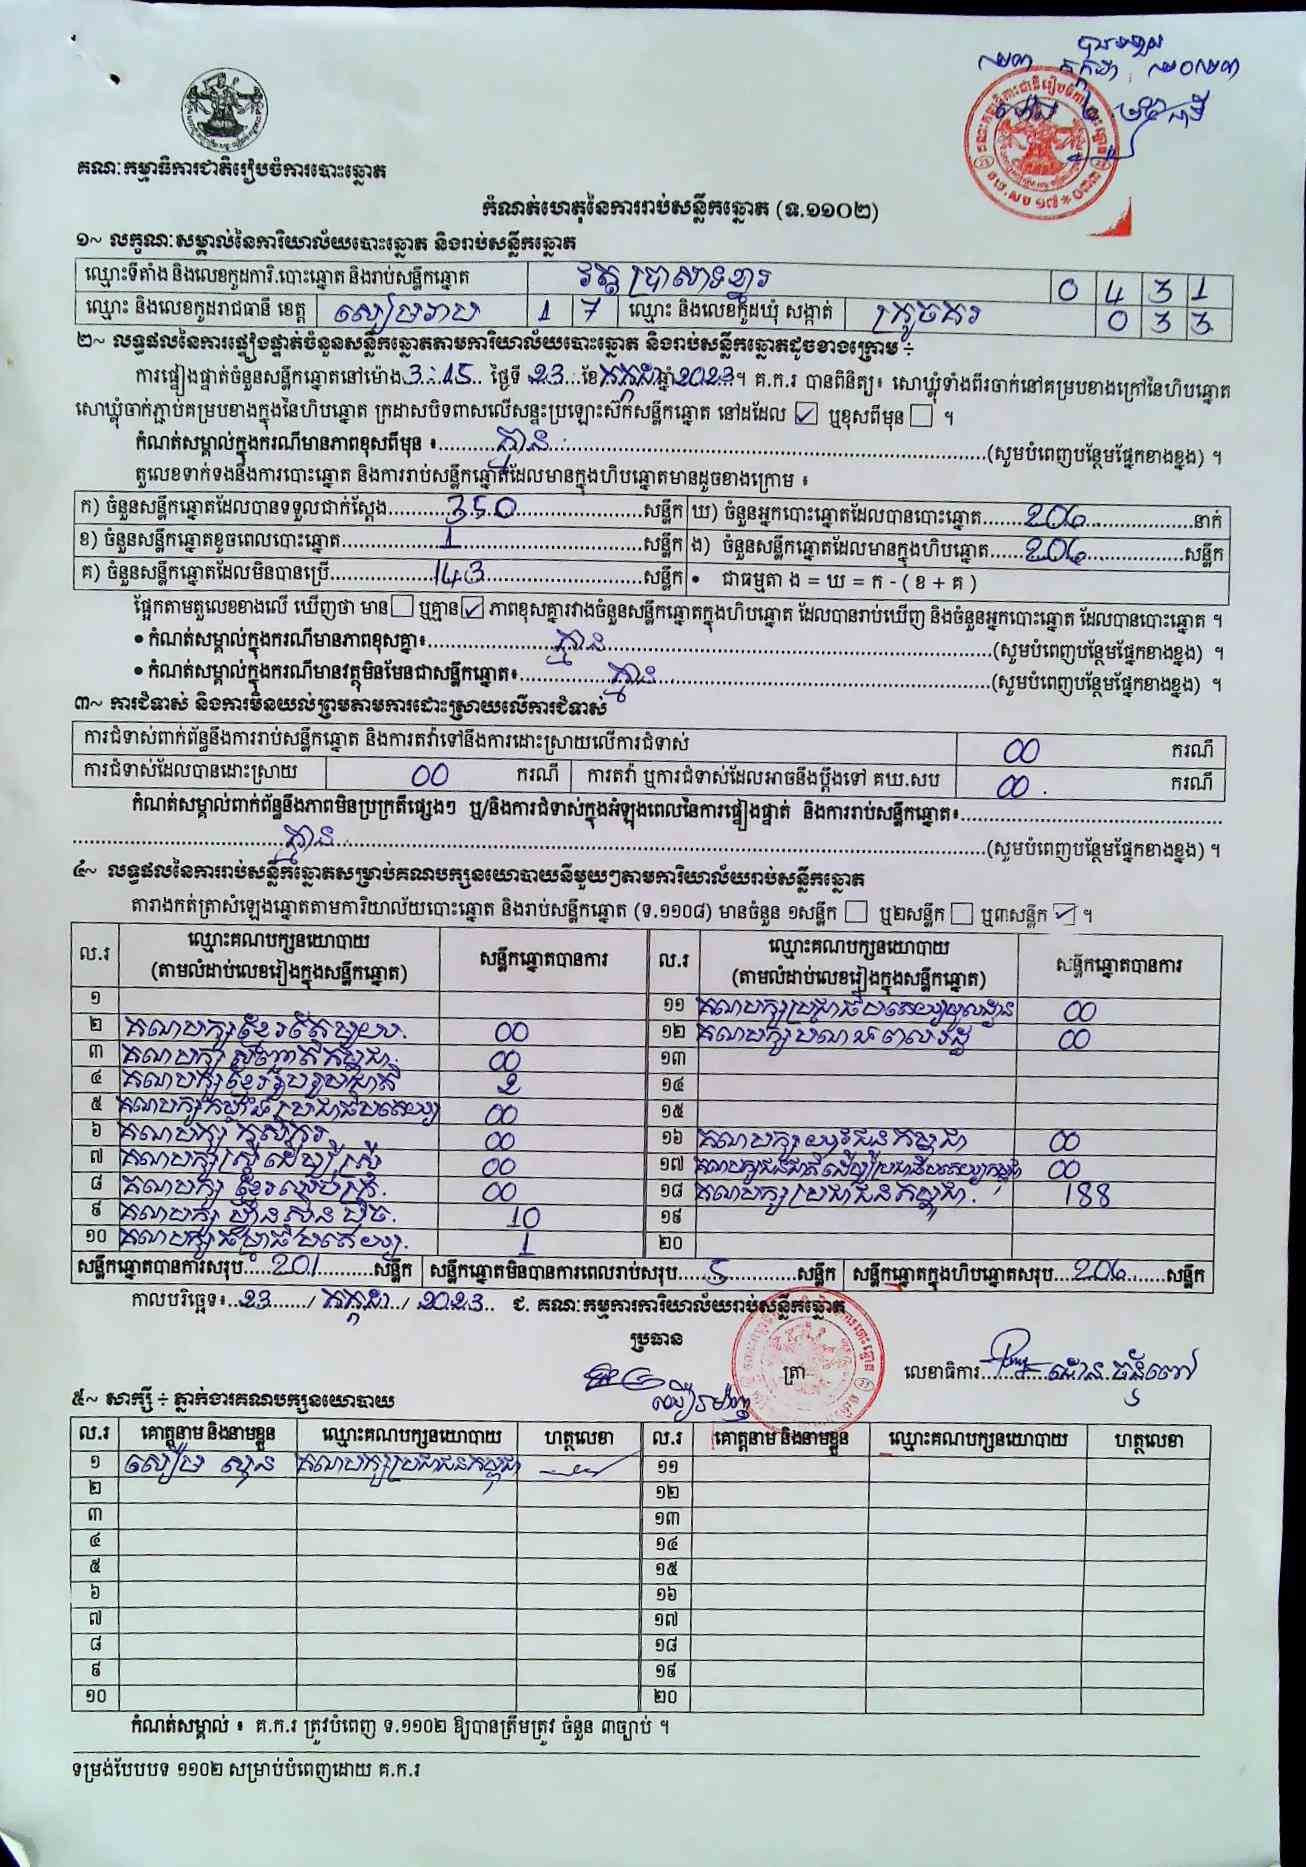 គណៈកម្មាធិការជាតិរៀបចំការបោះឆ្នោត
កំណត់ហេតុនៃការរាប់សន្លឹកឆ្នោត (ទ.១១០២)
១~ លក្ខណៈសម្គាល់នៃការិយាល័យបោះឆ្នោត និងរាប់សន្លឹកឆ្នោត
ឈ្មោះទីតាំង និងលេខកូដការិ.បោះឆ្នោត និងរាប់សន្លឹកឆ្នោត វត្តប្រាសាទខ្នារ 0 4 3 1
ឈ្មោះ និងលេខកូដរាជធានី ខេត្ត សៀមរាប 1 7 ឈ្មោះ និងលេខកូដឃុំ សង្កាត់ ក្រូចគរ 0 3 3
២~ លទ្ធផលនៃការផ្ទៀងផ្ទាត់ចំនួនសន្លឹកឆ្នោតតាមការិយាល័យបោះឆ្នោត និងរាប់សន្លឹកឆ្នោតដូចខាងក្រោម ÷
ការផ្ទៀងផ្ទាត់ចំនួនសន្លឹកឆ្នោតនៅម៉ោង 3:15 ថ្ងៃទី 23 ខែ កក្កដា ឆ្នាំ 2023 ។ គ.ក.រ បានពិនិត្យ៖ សោឃ្លុំទាំងពីរចាក់នៅគម្របខាងក្រៅនៃហិបឆ្នោត
សោឃ្លុំចាក់ភ្ជាប់គម្របខាងក្នុងនៃហិបឆ្នោត ក្រដាសបិទពាសលើសន្ទះប្រឡោះស៊កសន្លឹកឆ្នោត នៅដដែល ☑ ឬខុសពីមុន ☐ ។
កំណត់សម្គាល់ក្នុងករណីមានភាពខុសពីមុន ៖ គ្មាន (សូមបំពេញបន្ថែមផ្នែកខាងខ្នង) ។
តួលេខទាក់ទងនឹងការបោះឆ្នោត និងការរាប់សន្លឹកឆ្នោតដែលមានក្នុងហិបឆ្នោតមានដូចខាងក្រោម ៖
ក) ចំនួនសន្លឹកឆ្នោតដែលបានទទួលជាក់ស្តែង 350 សន្លឹក ឃ) ចំនួនអ្នកបោះឆ្នោតដែលបានបោះឆ្នោត 206 នាក់
ខ) ចំនួនសន្លឹកឆ្នោតខូចពេលបោះឆ្នោត 1 សន្លឹក ង) ចំនួនសន្លឹកឆ្នោតដែលមានក្នុងហិបឆ្នោត 206 សន្លឹក
គ) ចំនួនសន្លឹកឆ្នោតដែលមិនបានប្រើ 143 សន្លឹក • ជាធម្មតា ង = ឃ = ក - ( ខ + គ )
ផ្អែកតាមតួលេខខាងលើ ឃើញថា មាន ☐ ឬគ្មាន ☑ ភាពខុសគ្នារវាងចំនួនសន្លឹកឆ្នោតក្នុងហិបឆ្នោត ដែលបានរាប់ឃើញ និងចំនួនអ្នកបោះឆ្នោត ដែលបានបោះឆ្នោត ។
• កំណត់សម្គាល់ក្នុងករណីមានភាពខុសគ្នា៖ គ្មាន (សូមបំពេញបន្ថែមផ្នែកខាងខ្នង) ។
• កំណត់សម្គាល់ក្នុងករណីមានវត្ថុមិនមែនជាសន្លឹកឆ្នោត៖ គ្មាន (សូមបំពេញបន្ថែមផ្នែកខាងខ្នង) ។
៣~ ការជំទាស់ និងការមិនយល់ព្រមតាមការដោះស្រាយលើការជំទាស់
ការជំទាស់ពាក់ព័ន្ធនឹងការរាប់សន្លឹកឆ្នោត និងការតវ៉ាទៅនឹងការដោះស្រាយលើការជំទាស់ 00 ករណី
ការជំទាស់ដែលបានដោះស្រាយ 00 ករណី ការតវ៉ា ឬការជំទាស់ដែលអាចនឹងប្តឹងទៅ គឃ.សប 00 ករណី
កំណត់សម្គាល់ពាក់ព័ន្ធនឹងភាពមិនប្រក្រតីផ្សេងៗ ឬ/និងការជំទាស់ក្នុងអំឡុងពេលនៃការផ្ទៀងផ្ទាត់ និងការរាប់សន្លឹកឆ្នោត៖
គ្មាន (សូមបំពេញបន្ថែមផ្នែកខាងខ្នង) ។
៤~ លទ្ធផលនៃការរាប់សន្លឹកឆ្នោតសម្រាប់គណបក្សនយោបាយនីមួយៗតាមការិយាល័យរាប់សន្លឹកឆ្នោត
តារាងកត់ត្រាសំឡេងឆ្នោតតាមការិយាល័យបោះឆ្នោត និងរាប់សន្លឹកឆ្នោត (ទ.១១០៨) មានចំនួន ១សន្លឹក ☐ ឬ២សន្លឹក ☐ ឬ៣សន្លឹក ☑ ។
ល.រ ឈ្មោះគណបក្សនយោបាយ (តាមលំដាប់លេខរៀងក្នុងសន្លឹកឆ្នោត) សន្លឹកឆ្នោតបានការ ល.រ ឈ្មោះគណបក្សនយោបាយ (តាមលំដាប់លេខរៀងក្នុងសន្លឹកឆ្នោត) សន្លឹកឆ្នោតបានការ
១ ១១ គណបក្សប្រជាធិបតេយ្យមូលដ្ឋាន 00
២ គណបក្សខ្មែរតែមួយ 00 ១២ គណបក្ស 00
៣ គណបក្សសញ្ជាតិកម្ពុជា 00 ១៣
៤ គណបក្សខ្មែររួបរួមជាតិ 2 ១៤
៥ គណបក្សកម្លាំងប្រជាធិបតេយ្យ 00 ១៥
៦ គណបក្សកសិករ 00 ១៦ គណបក្សយុវជនកម្ពុជា 00
៧ គណបក្សស្ត្រីដើម្បីស្ត្រី 00 ១៧ គណបក្សជនជាតិដើមប្រជាធិបតេយ្យកម្ពុជា 00
៨ គណបក្សខ្មែរ 00 ១៨ គណបក្សប្រជាជនកម្ពុជា 188
៩ គណបក្សហ៊្វុនស៊ិនប៉ិច 10 ១៩
១០ គណបក្សធម្មាធិបតេយ្យ 1 ២០
សន្លឹកឆ្នោតបានការសរុប 201 សន្លឹក សន្លឹកឆ្នោតមិនបានការពេលរាប់សរុប 5 សន្លឹក សន្លឹកឆ្នោតក្នុងហិបឆ្នោតសរុប 206 សន្លឹក
កាលបរិច្ឆេទ៖ 23 / កក្កដា / 2023 ជ. គណៈកម្មការការិយាល័យរាប់សន្លឹកឆ្នោត
ប្រធាន
ត្រា លេខាធិការ
៥~ សាក្សី ÷ ភ្នាក់ងារគណបក្សនយោបាយ
ល.រ គោត្តនាម និងនាមខ្លួន ឈ្មោះគណបក្សនយោបាយ ហត្ថលេខា ល.រ គោត្តនាម និងនាមខ្លួន ឈ្មោះគណបក្សនយោបាយ ហត្ថលេខា
១ សៀម សុន គណបក្សប្រជាជនកម្ពុជា ១១
២ ១២
៣ ១៣
៤ ១៤
៥ ១៥
៦ ១៦
៧ ១៧
៨ ១៨
៩ ១៩
១០ ២០
កំណត់សម្គាល់ ៖ គ.ក.រ ត្រូវបំពេញ ទ.១១០២ ឱ្យបានត្រឹមត្រូវ ចំនួន ៣ច្បាប់ ។
ទម្រង់បែបបទ ១១០២ សម្រាប់បំពេញដោយ គ.ក.រ